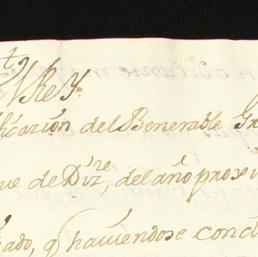 VRey.
ficazion del Benerable
ue de Diz.re, del año prox
ado, q haviendose conclu